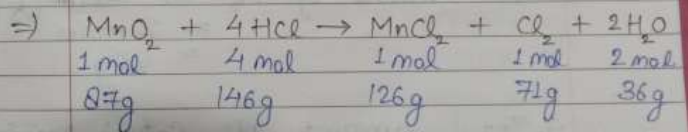 ⇒ MnO₂ + 4HCl → MnCl₂ + Cl₂ + 2H₂O
1 mol 4 mol 1 mol 1 mol 2 mol
87g 146g 126g 71g 36g